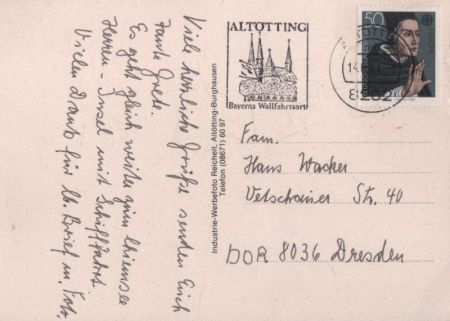 Viele herzliche Grüße senden Euch
Tante Grete.
Es geht gleich weiter zum Chiemsee
Herren-Insel mit Schiffahrt.
Vielen Dank für lb. Brief u. Foto.
Industrie-Werbefoto Reichelt, Altötting-Burghausen
Telefon (08671) 60 97
ALTÖTTING
Bayerns Wallfahrtsort
50
8262
Fam.
Hans Wacker
Vetschauer Str. 40
DDR 8036 Dresden